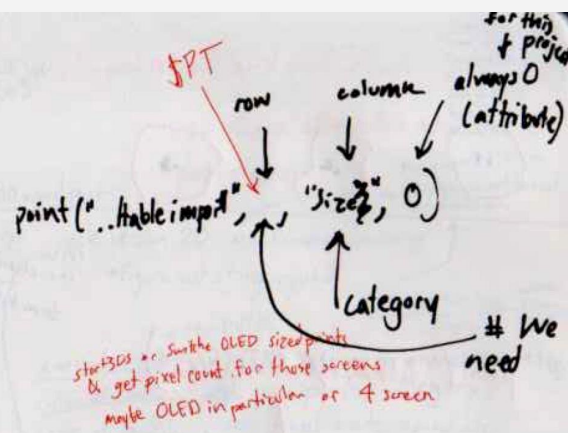 for this
& project
always 0
(attribute)
$PT
row
column
point("..Htableimport", , "size}", 0)
category
# We
need
start3DS or Switche OLED sized points
& get pixel count for those screens
maybe OLED in particular or 4 screen